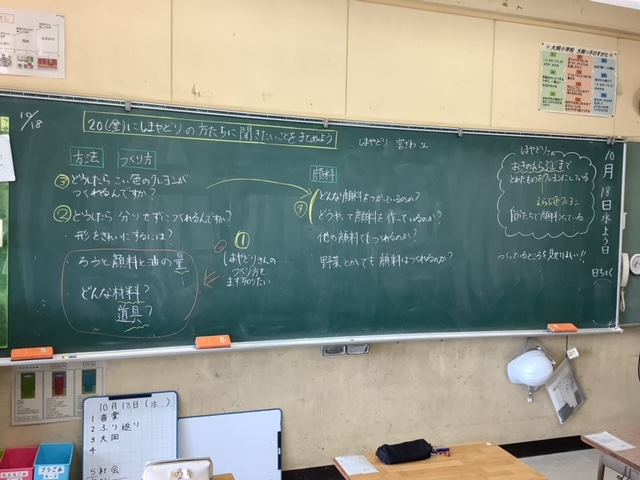 10/18
20(金)にしまやどりの方たちに聞きたいことをまとめよう
方法 つくり方
③どうしたらこい色のクレヨンが
つくれるんですか?
②どうしたら分りせずにつくれるんですか?
形をきれいにするには?
ろうと顔料と油の量
どんな材料?
道具?
①
しまやどりさんの
つくり方を
まず知りたい
しまやどり 宮ざわ
顔料
④
どんな顔料をつかっているのか?
どうやって顔料を作っているのか?
他の顔料でもつくれるのか?
野菜とかでも顔料はつくれるのか?
しまやどり
おきのえらぶじまで
とれたものをクレヨンにしている
えらぶ色クレヨン
自分たちで顔料つくっている
つくっているところを見せてほしい!!
10月18日水よう日
日ちょく
大岡小学校 大岡っ子のすがた
10月18日(水)
1 音楽
2 ふり返り
3 大岡
4
5 社会